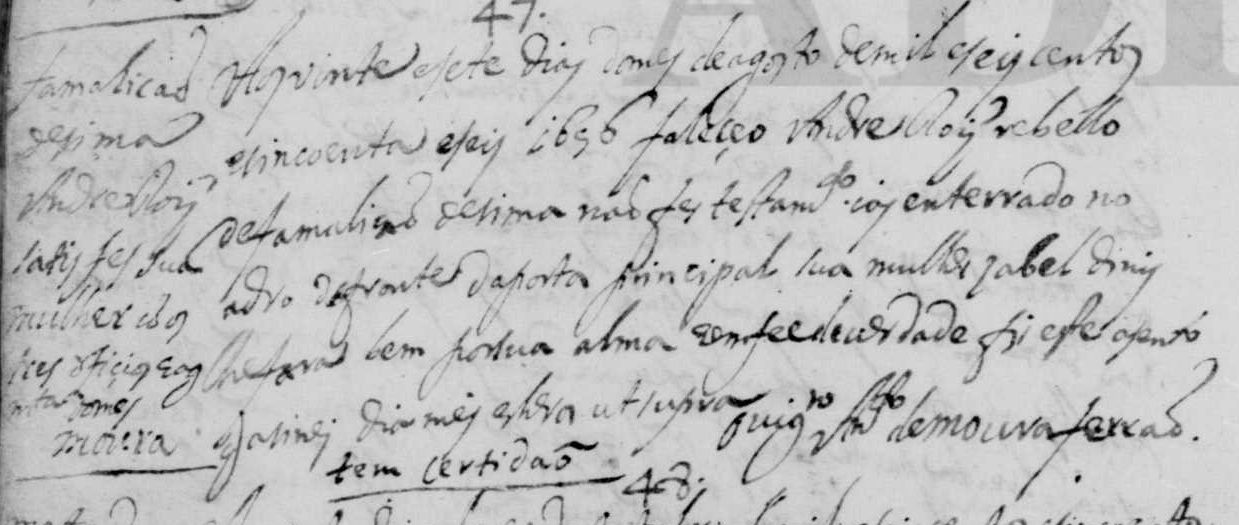 47.
famalicaõ
desima
Andre Roĩz
satisfes sua
mulher cõ os
tres officios e as
Moura
Aos vinte e sete dias do mes de agosto de mil e seis centos
e sincoenta e seis 1656 faleçeo Andre Roiz rebello
de famalicaõ desima naõ fes testamto. ias enterrado no
adro defronte da porta prinsipal sua mulher Jzabel dinis
lhe fara bem por sua alma e em fee de uerdade fis este asento
q asinej dia mes e hera ut supra o uigro Anto de moura ferraõ.
tem certidaõ
48.